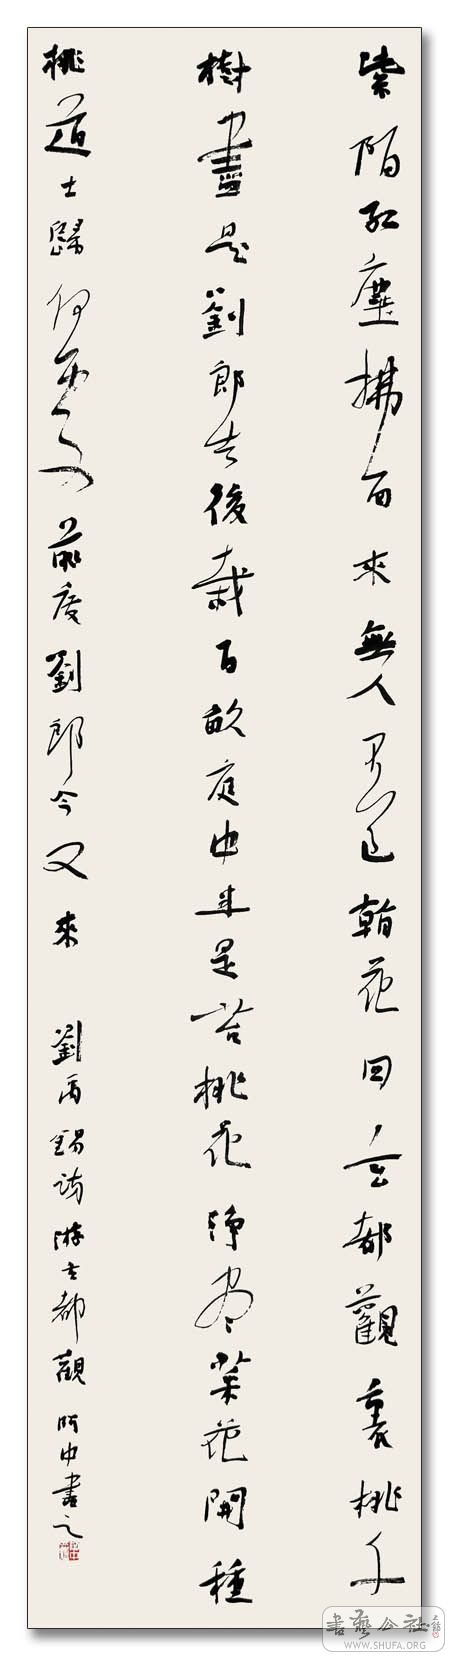 紫陌紅塵拂面來無人不道看花回玄都觀裏桃千
樹盡是劉郎去後栽百畝庭中半是苔桃花淨盡菜花開種
桃道士歸何處前度劉郎今又來 劉禹錫詩游玄都觀 中書之
書藝公社
WWW.SHUFA.ORG